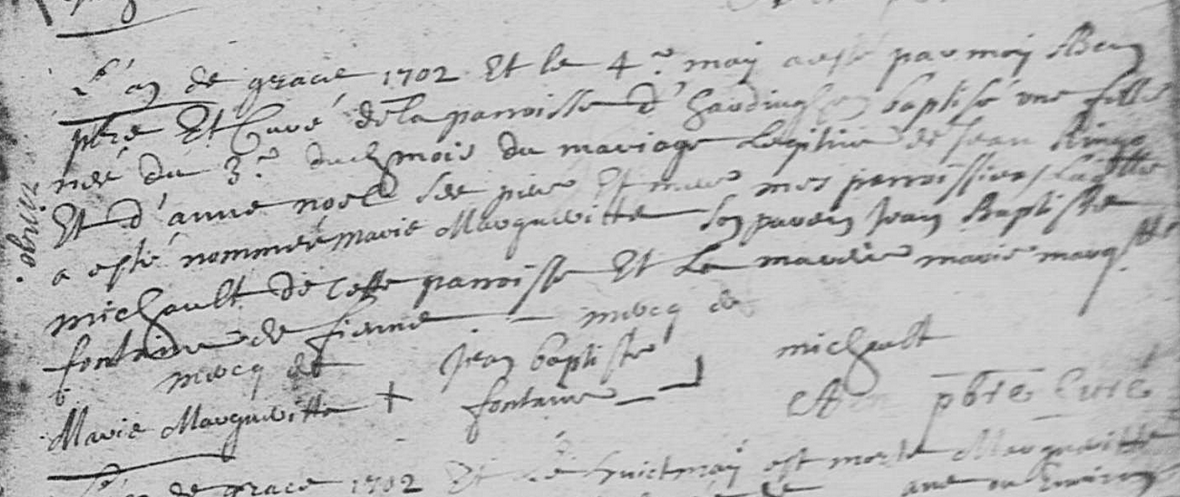 L'an de grace 1702 Et le 4.e may a esté par moy
pbre Et Curé de la parroisse d' baptisé une fille
neé du 3.e dudt mois du mariage Legitime de Jean
Et d'anne noel ses pere Et mere mes parroissiens Laditte
a esté nommeé marie Margueritte son parein Jean Baptiste
michault de Cette parroisse Et La mareine marie margtte
fontaine de fienne — mercq de
mercq de Jean baptiste michault
Marie Margueritte + fontaine — pbre Curé
de grace 1702 Et Le huict may est morte Margueritte